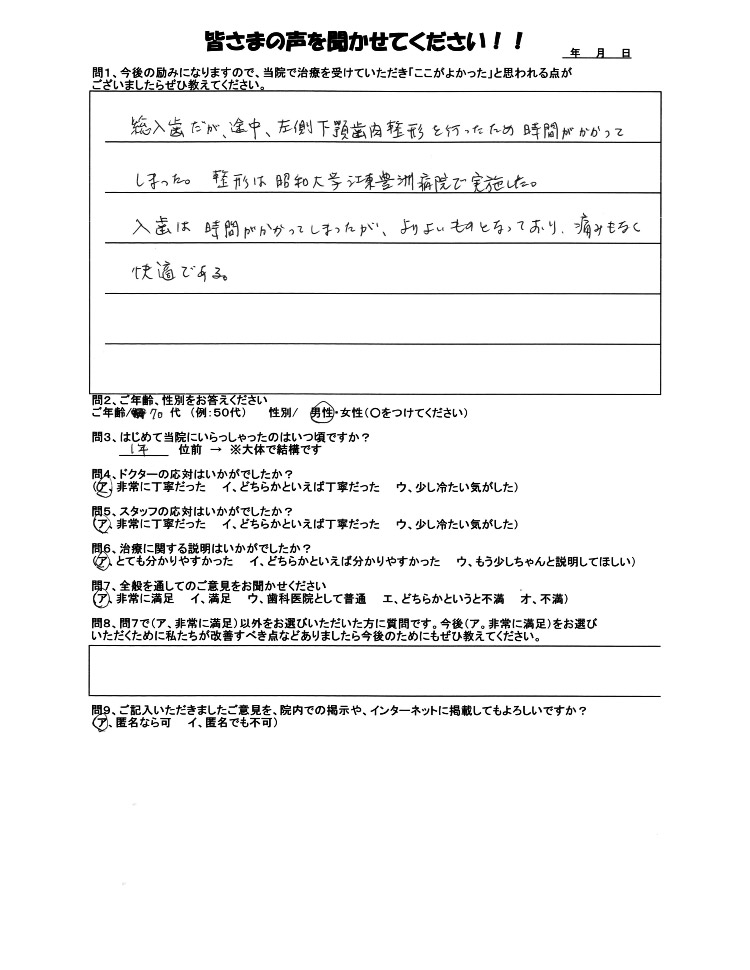 皆さまの声を聞かせてください！！
年　月　日
問1、今後の励みになりますので、当院で治療を受けていただき「ここがよかった」と思われる点が
ございましたらぜひ教えてください。
総入歯だが、途中、左側下顎歯肉整形を行ったため時間がかかって
しまった。整形は昭和大学江東豊洲病院で実施した。
入歯は時間がかかってしまったが、よりよいものとなっており、痛みもなく
快適である。
問2、ご年齢、性別をお答えください
ご年齢/ 70 代（例：50代）　性別/　男性・女性（〇をつけてください）
問3、はじめて当院にいらっしゃったのはいつ頃ですか？
1年 位前 → ※大体で結構です
問4、ドクターの応対はいかがでしたか？
（ア、非常に丁寧だった　イ、どちらかといえば丁寧だった　ウ、少し冷たい気がした）
問5、スタッフの応対はいかがでしたか？
（ア、非常に丁寧だった　イ、どちらかといえば丁寧だった　ウ、少し冷たい気がした）
問6、治療に関する説明はいかがでしたか？
（ア、とても分かりやすかった　イ、どちらかといえば分かりやすかった　ウ、もう少しちゃんと説明してほしい）
問7、全般を通してのご意見をお聞かせください
（ア、非常に満足　イ、満足　ウ、歯科医院として普通　エ、どちらかというと不満　オ、不満）
問8、問7で（ア、非常に満足）以外をお選びいただいた方に質問です。今後（ア。非常に満足）をお選び
いただくために私たちが改善すべき点などありましたら今後のためにもぜひ教えてください。
問9、ご記入いただきましたご意見を、院内での掲示や、インターネットに掲載してもよろしいですか？
（ア、匿名なら可　イ、匿名でも不可）